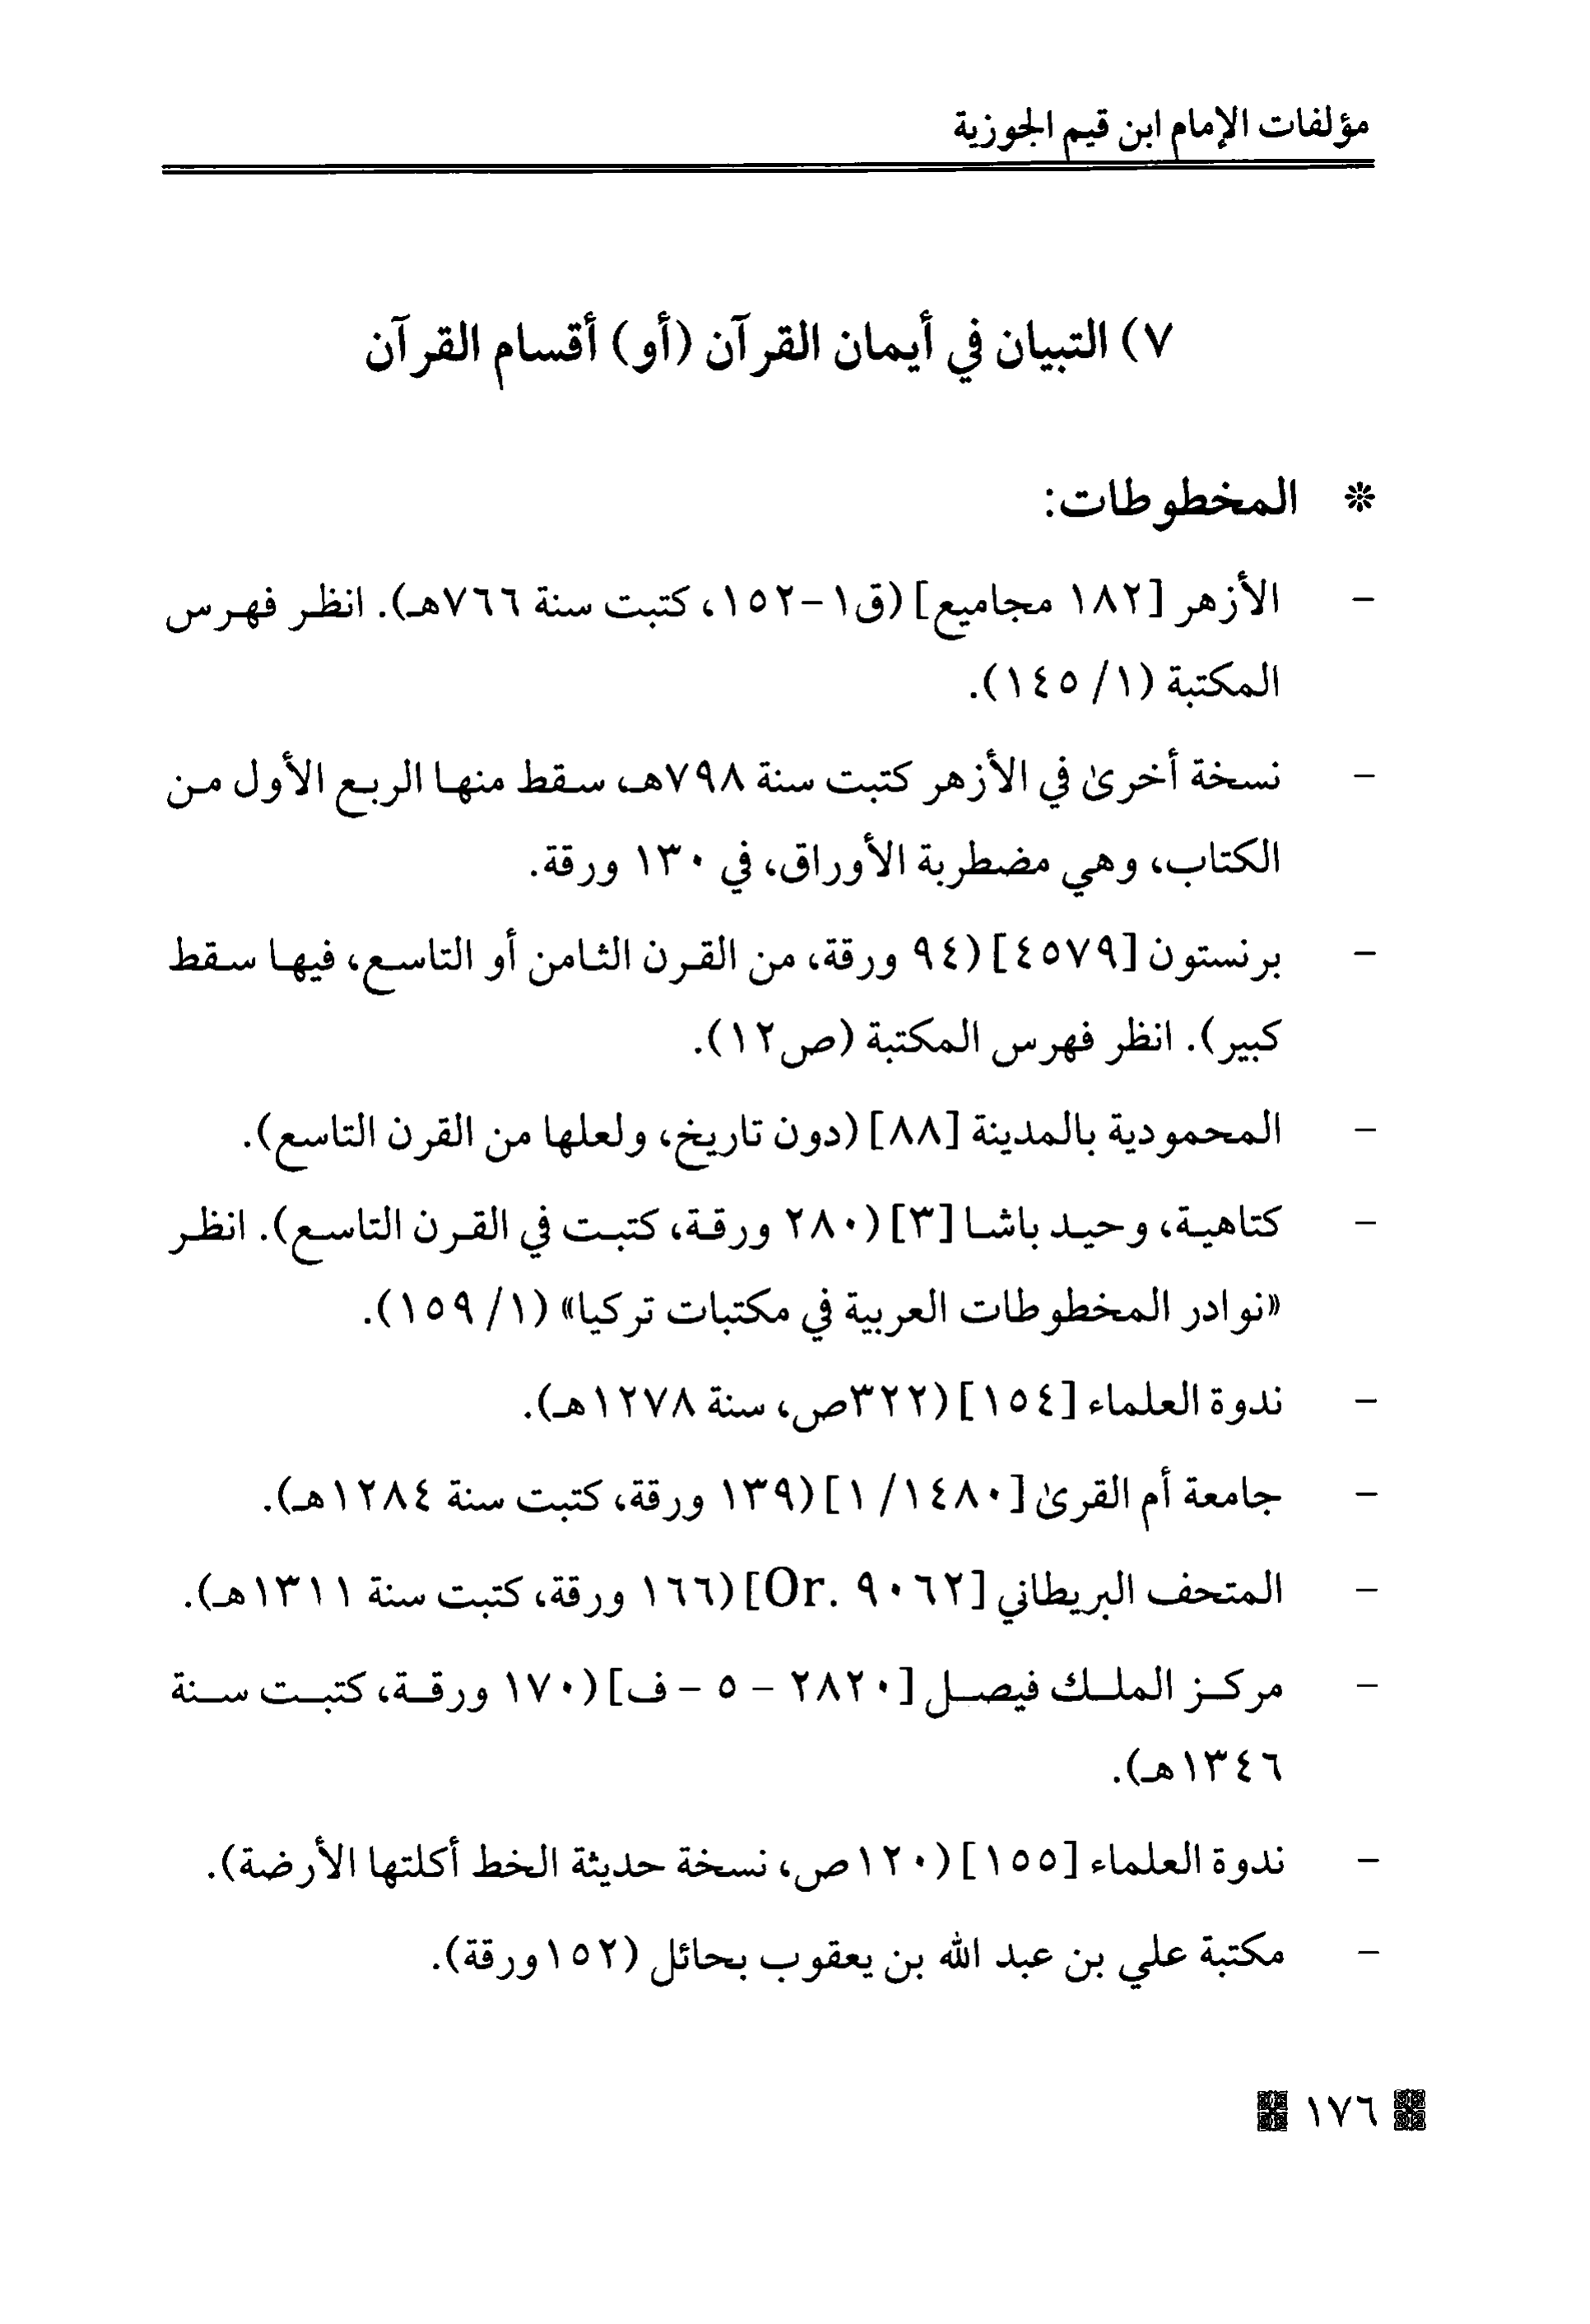 مؤلفات الإمام ابن قيم الجوزية
٧) التبيان في أيمان القرآن (أو) أقسام القرآن
* المخطوطات:
- الأزهر [١٨٢ مجاميع] (ق١-١٥٢، كتبت سنة ٧٦٦هـ). انظر فهرس
المكتبة (١/ ١٤٥).
- نسخة أخرىٰ في الأزهر كتبت سنة ٧٩٨هـ، سقط منها الربع الأول من
الكتاب، وهي مضطربة الأوراق، في ١٣٠ ورقة.
- برنستون [٤٥٧٩] (٩٤ ورقة، من القرن الثامن أو التاسع، فيها سقط
كبير). انظر فهرس المكتبة (ص١٢).
- المحمودية بالمدينة [٨٨] (دون تاريخ، ولعلها من القرن التاسع).
- كتاهية، وحيد باشا [٣] (٢٨٠ ورقة، كتبت في القرن التاسع). انظر
«نوادر المخطوطات العربية في مكتبات تركيا» (١/ ١٥٩).
- ندوة العلماء [١٥٤] (٣٢٢ص، سنة ١٢٧٨هـ).
- جامعة أم القرىٰ [١٤٨٠/ ١] (١٣٩ ورقة، كتبت سنة ١٢٨٤هـ).
- المتحف البريطاني [Or. ٩٠٦٢] (١٦٦ ورقة، كتبت سنة ١٣١١هـ).
- مركز الملك فيصل [٢٨٢٠ - ٥ - ف] (١٧٠ ورقة، كتبت سنة
١٣٤٦هـ).
- ندوة العلماء [١٥٥] (١٢٠ص، نسخة حديثة الخط أكلتها الأرضة).
- مكتبة علي بن عبد الله بن يعقوب بحائل (١٥٢ورقة).
١٧٦